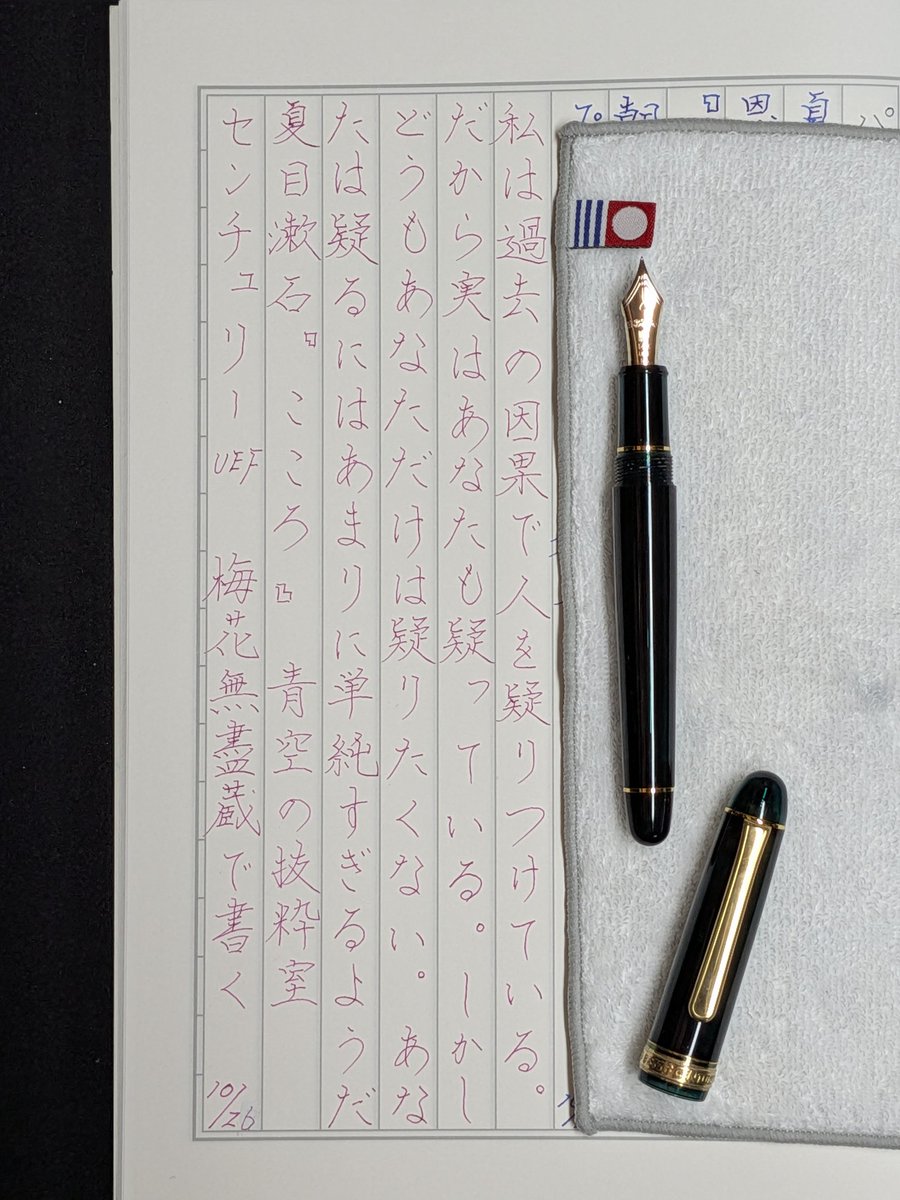 私は過去の因果で人を疑りつけている。
だから実はあなたも疑っている。しかし
どうもあなただけは疑りたくない。あな
たは疑るにはあまりに単純すぎるようだ
夏目漱石『こころ』 青空の抜粋室
センチュリーUEF 梅花無盡蔵で書く 10/26